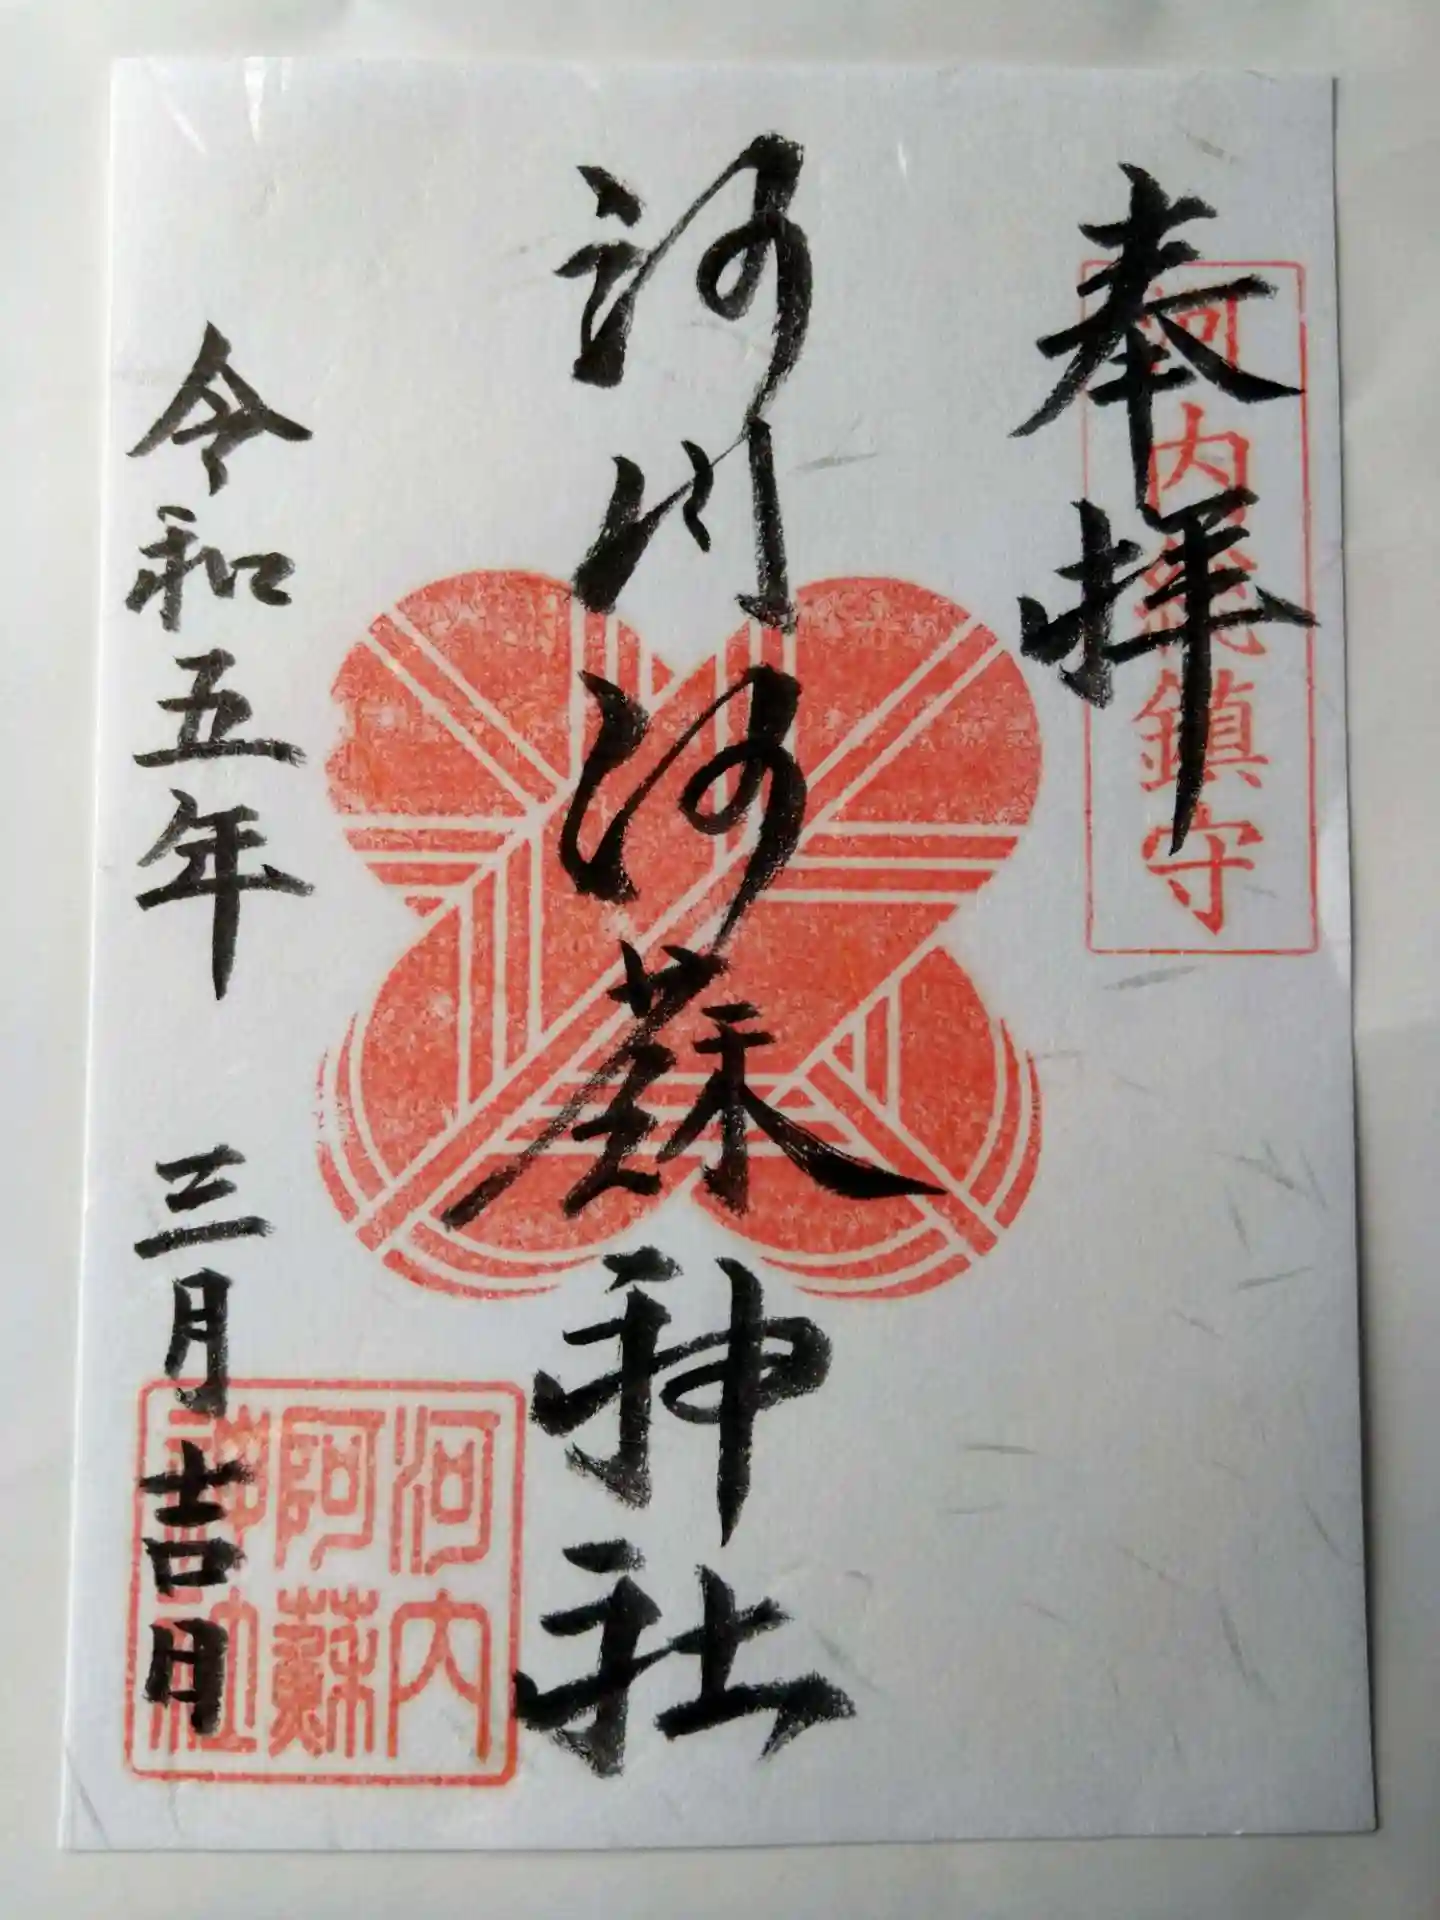 奉拝
河内総鎮守
河内阿蘇神社
令和五年 三月吉日
河内
阿蘇
神社